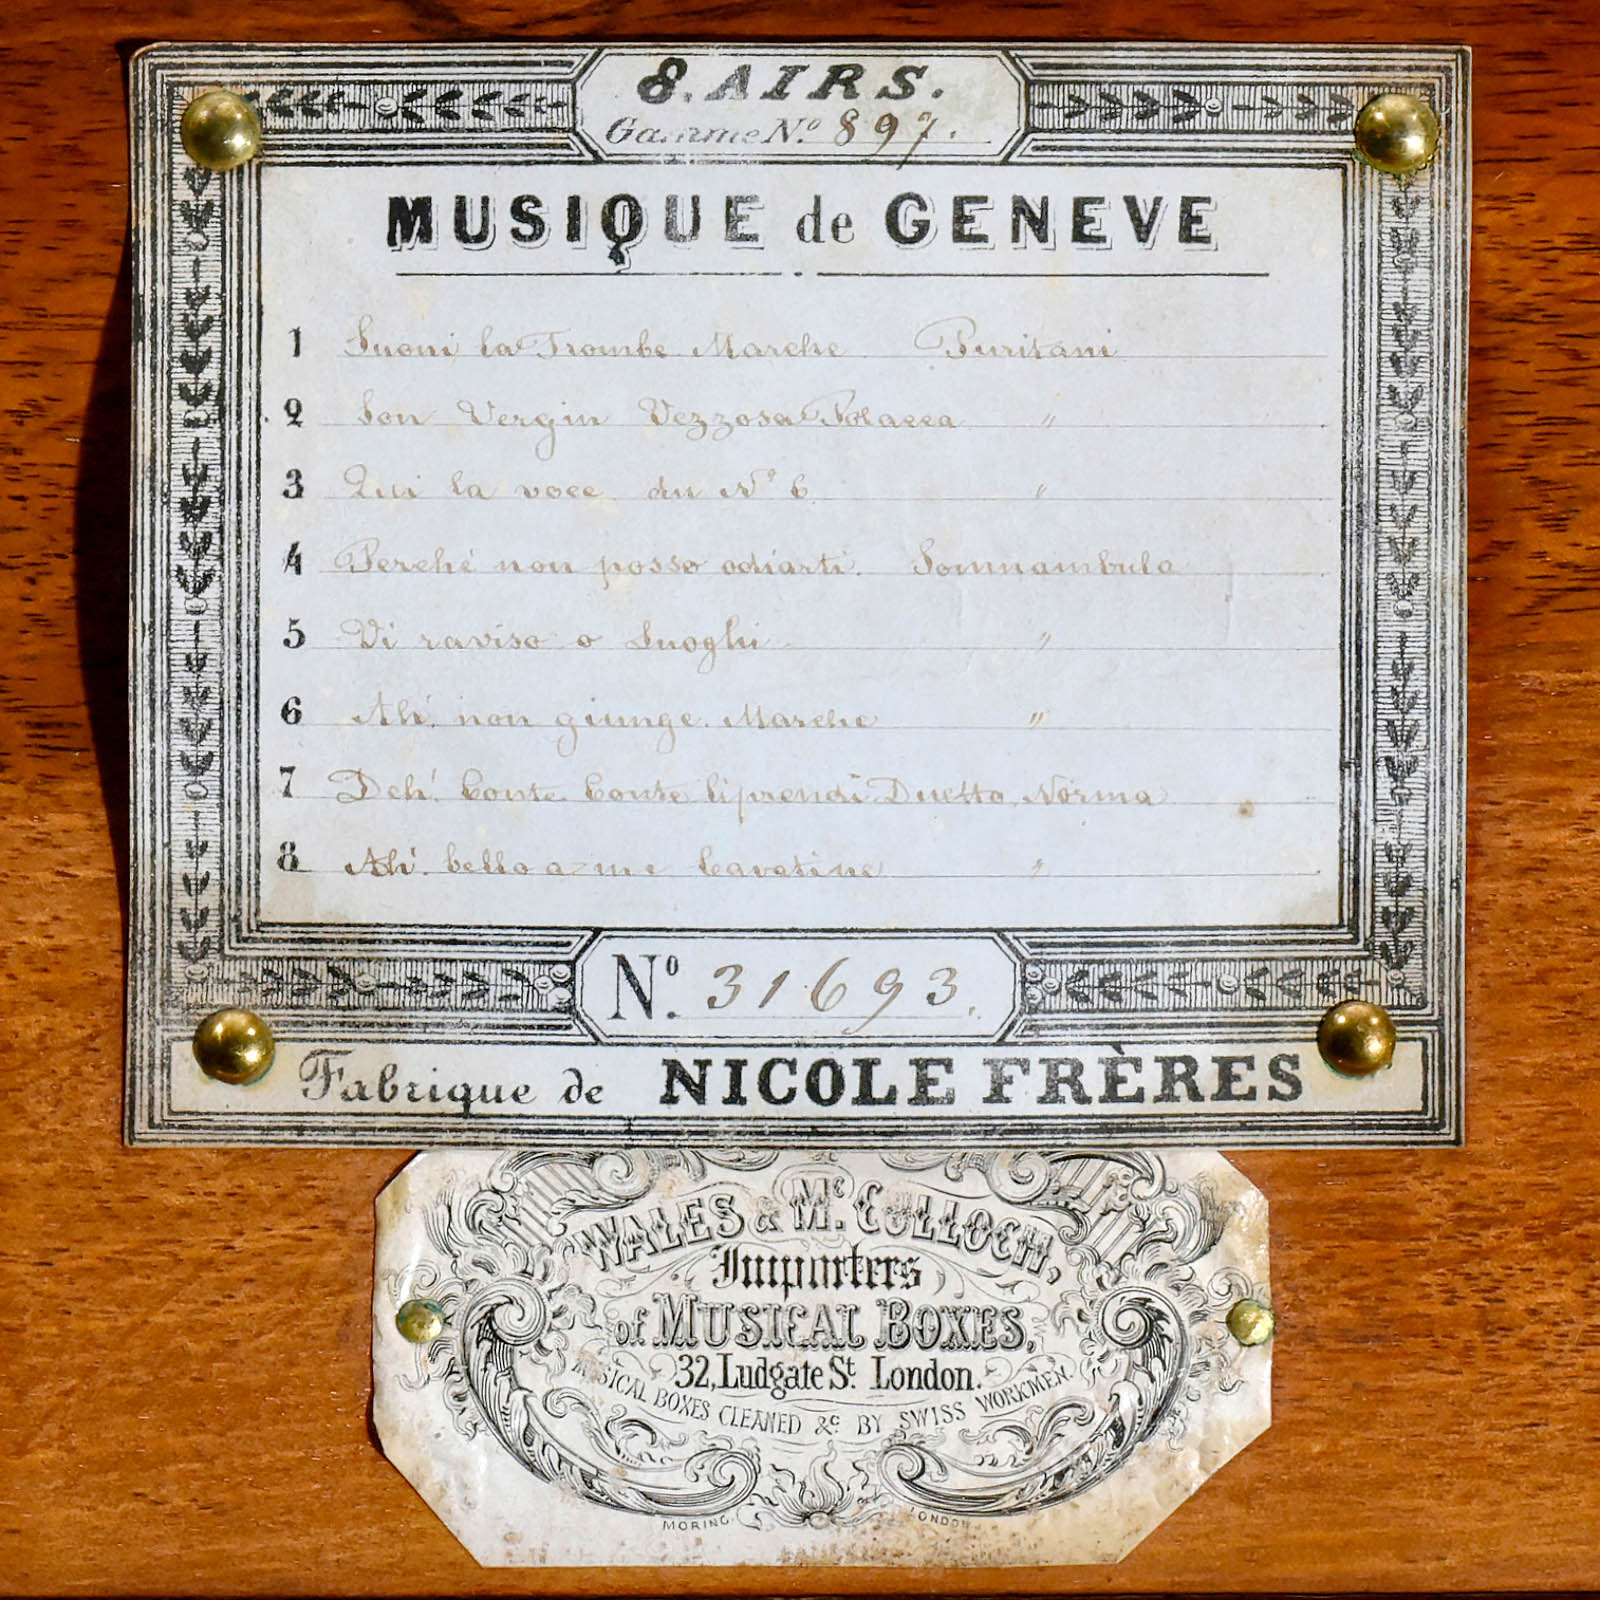 8. AIRS.
Gamme No. 897.
MUSIQUE de GENEVE
1 Suoni la Trombe Marche Puritani
2 Son Vergin Vezzosa Polacca "
3 Qui la voce du No 6 "
4 Perché non posso odiarti. Somnambula
5 Vi raviso o Luoghi "
6 Ah! non giunge. Marche "
7 Deh! Conte Conte li prendi Duetto Norma
8 Ah! bello a me Cavatine "
No. 31693.
Fabrique de NICOLE FRÈRES
WALES & Mc. CULLOCH,
Importers
of MUSICAL BOXES,
32, Ludgate St. London.
MUSICAL BOXES CLEANED &c. BY SWISS WORKMEN.
MORING. LONDON